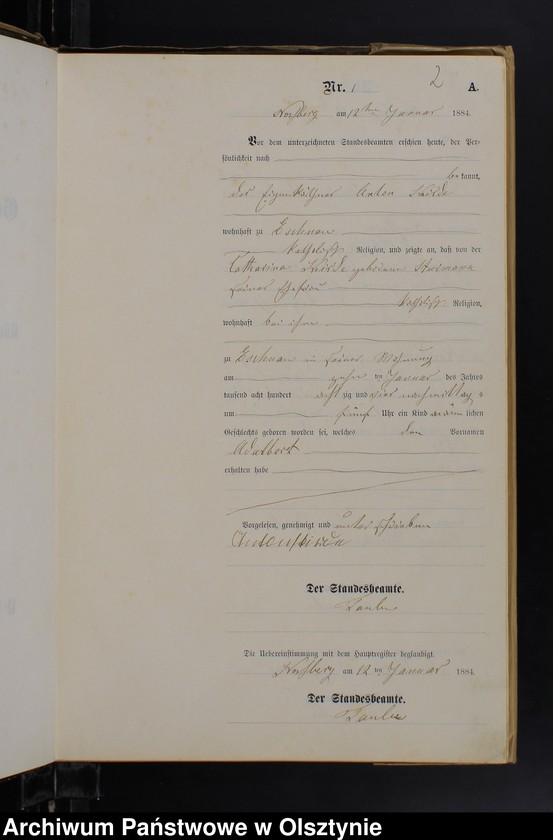 2
Nr. 1 A.
am 12ten Januar 1884.
Vor dem unterzeichneten Standesbeamten erschien heute, der Per-
sönlichkeit nach
bekannt,
der Eigenkäthner Anton
wohnhaft zu Eschenau
katholischer Religion, und zeigte an, daß von der
Catharina geborene
seiner Ehefrau
katholischer Religion,
wohnhaft bei ihm
zu Eschenau in seiner Wohnung
am zehn ten Januar des Jahres
tausend acht hundert achtzig und vier nachmittags
um fünf Uhr ein Kind männlichen
Geschlechts geboren worden sei, welches den Vornamen
Adalbert
erhalten habe
Vorgelesen, genehmigt und unterschrieben
Anton
Der Standesbeamte.
Die Uebereinstimmung mit dem Hauptregister beglaubigt.
am 12 ten Januar 1884.
Der Standesbeamte.
Archiwum Państwowe w Olsztynie